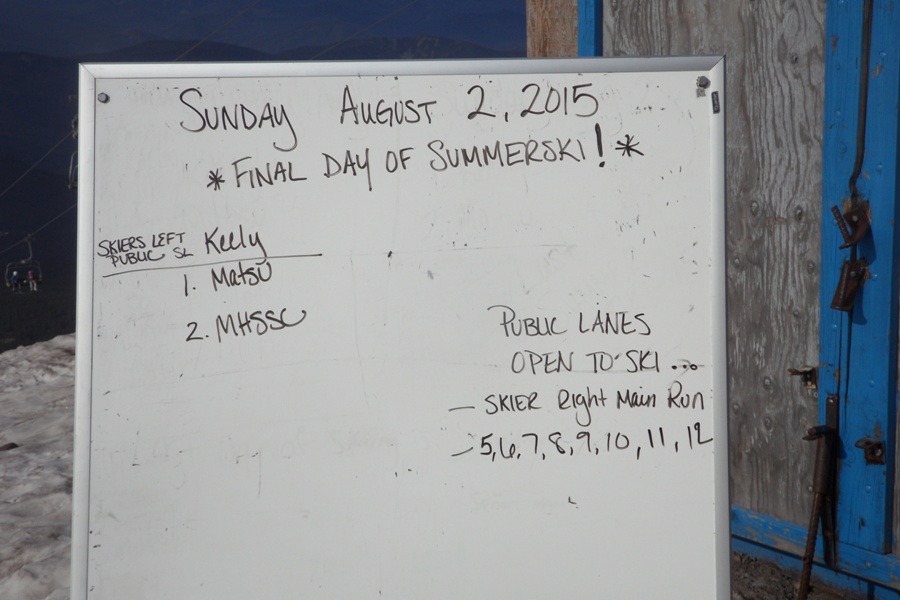 SUNDAY AUGUST 2, 2015
* FINAL DAY OF SUMMERSKI! *
SKIERS LEFT
PUBLIC SL Keely
1. Matsu
2. MHSSC
PUBLIC LANES
OPEN TO SKI...
— SKIER Right Main Run
— 5,6,7,8,9,10,11,12